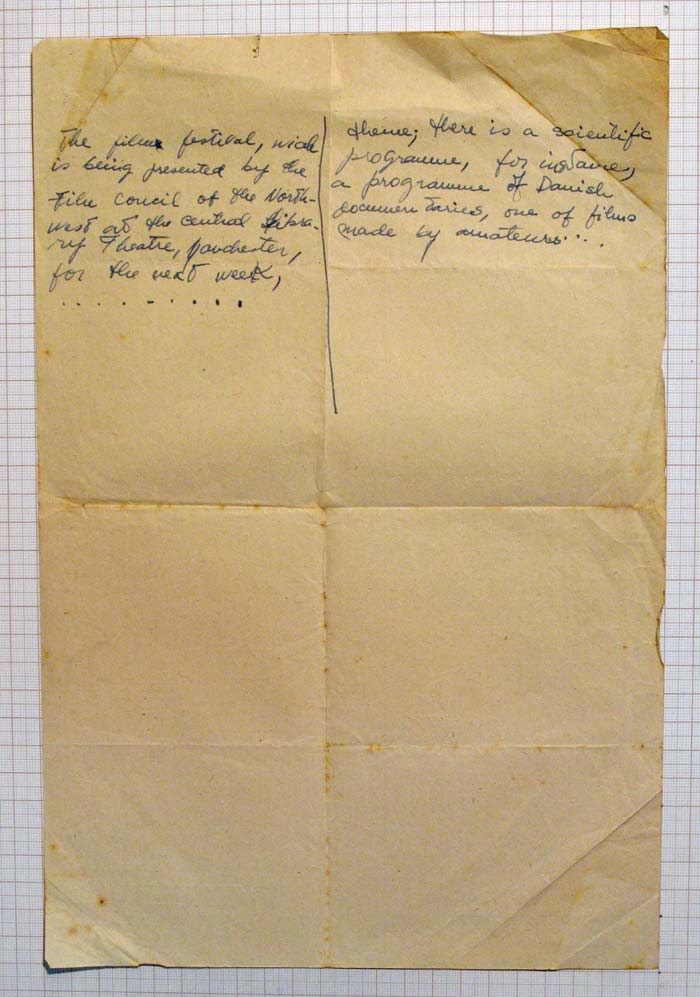 The film festival, wich
is being presented by the
Film Council of the North-
west at the Central Libra-
ry Theatre, Manchester,
for the next week,
. . . . - . . . .
theme; there is a scientific
programme, for instance,
a programme of Danish
documentaries, one of films
made by amateurs....